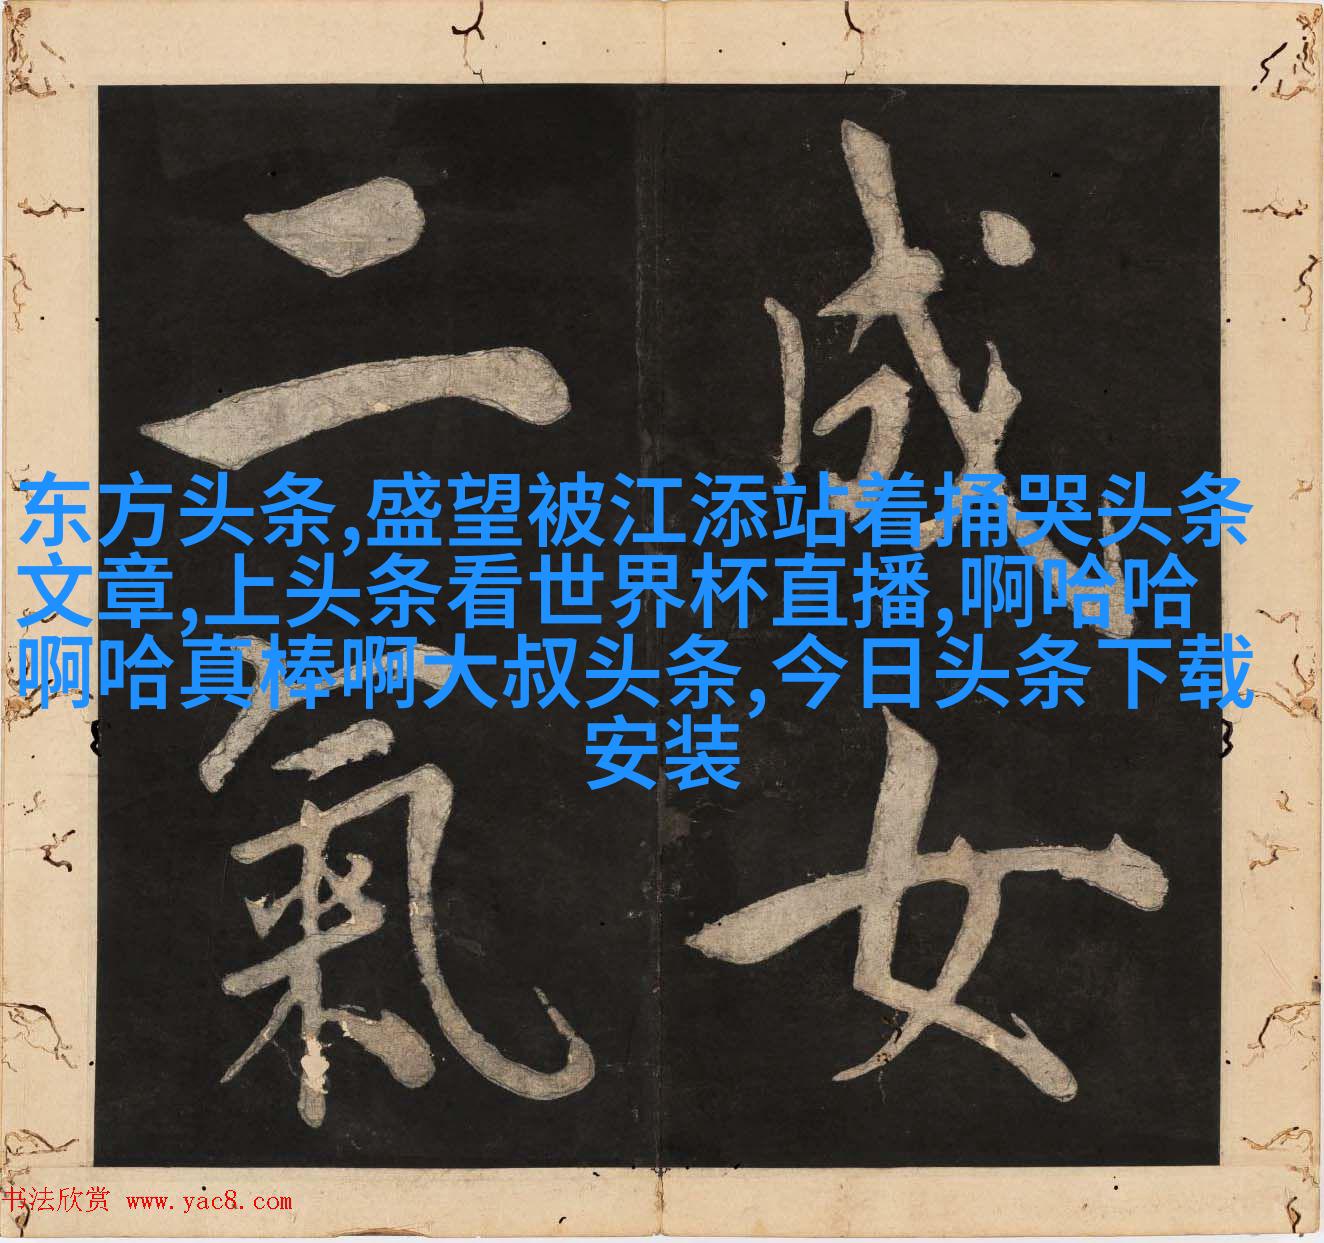 成女
二氣
东方头条,盛望被江添站着捅哭头条
文章,上头条看世界杯直播,啊哈哈
啊哈真棒啊大叔头条,今日头条下载
安装
书法欣赏 www.yac8.com